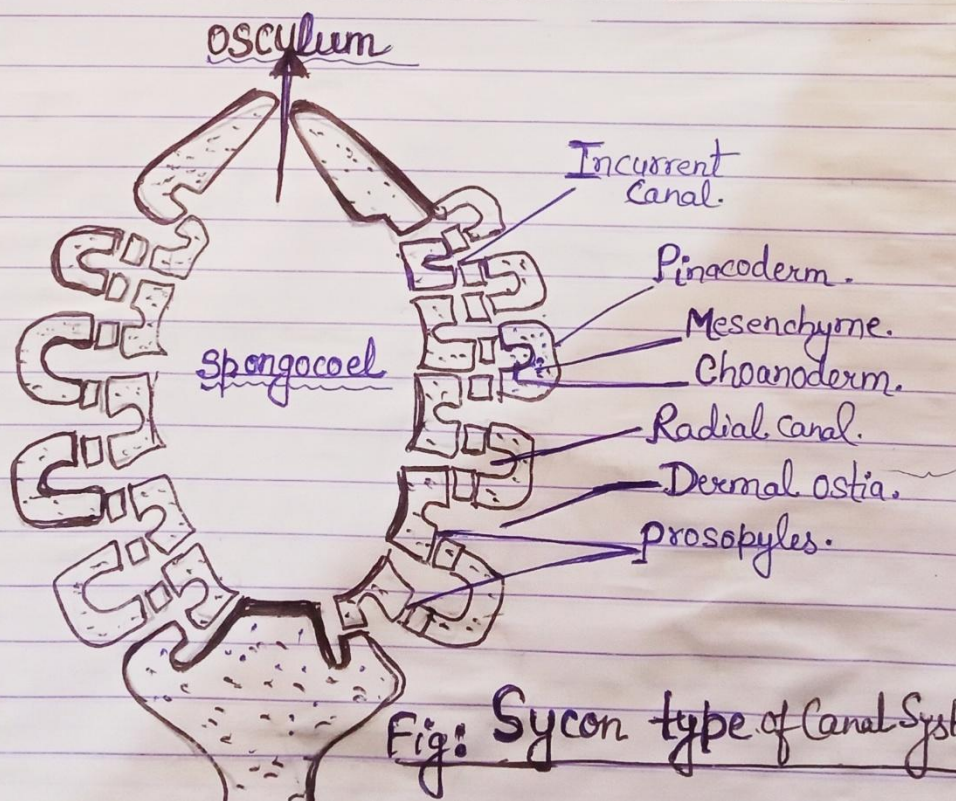 osculum
Incurrent
Canal.
Pinacoderm.
Mesenchyme.
spongocoel
Choanoderm.
Radial canal.
Dermal ostia.
prosopyles.
Fig: Sycon type of Canal Syst